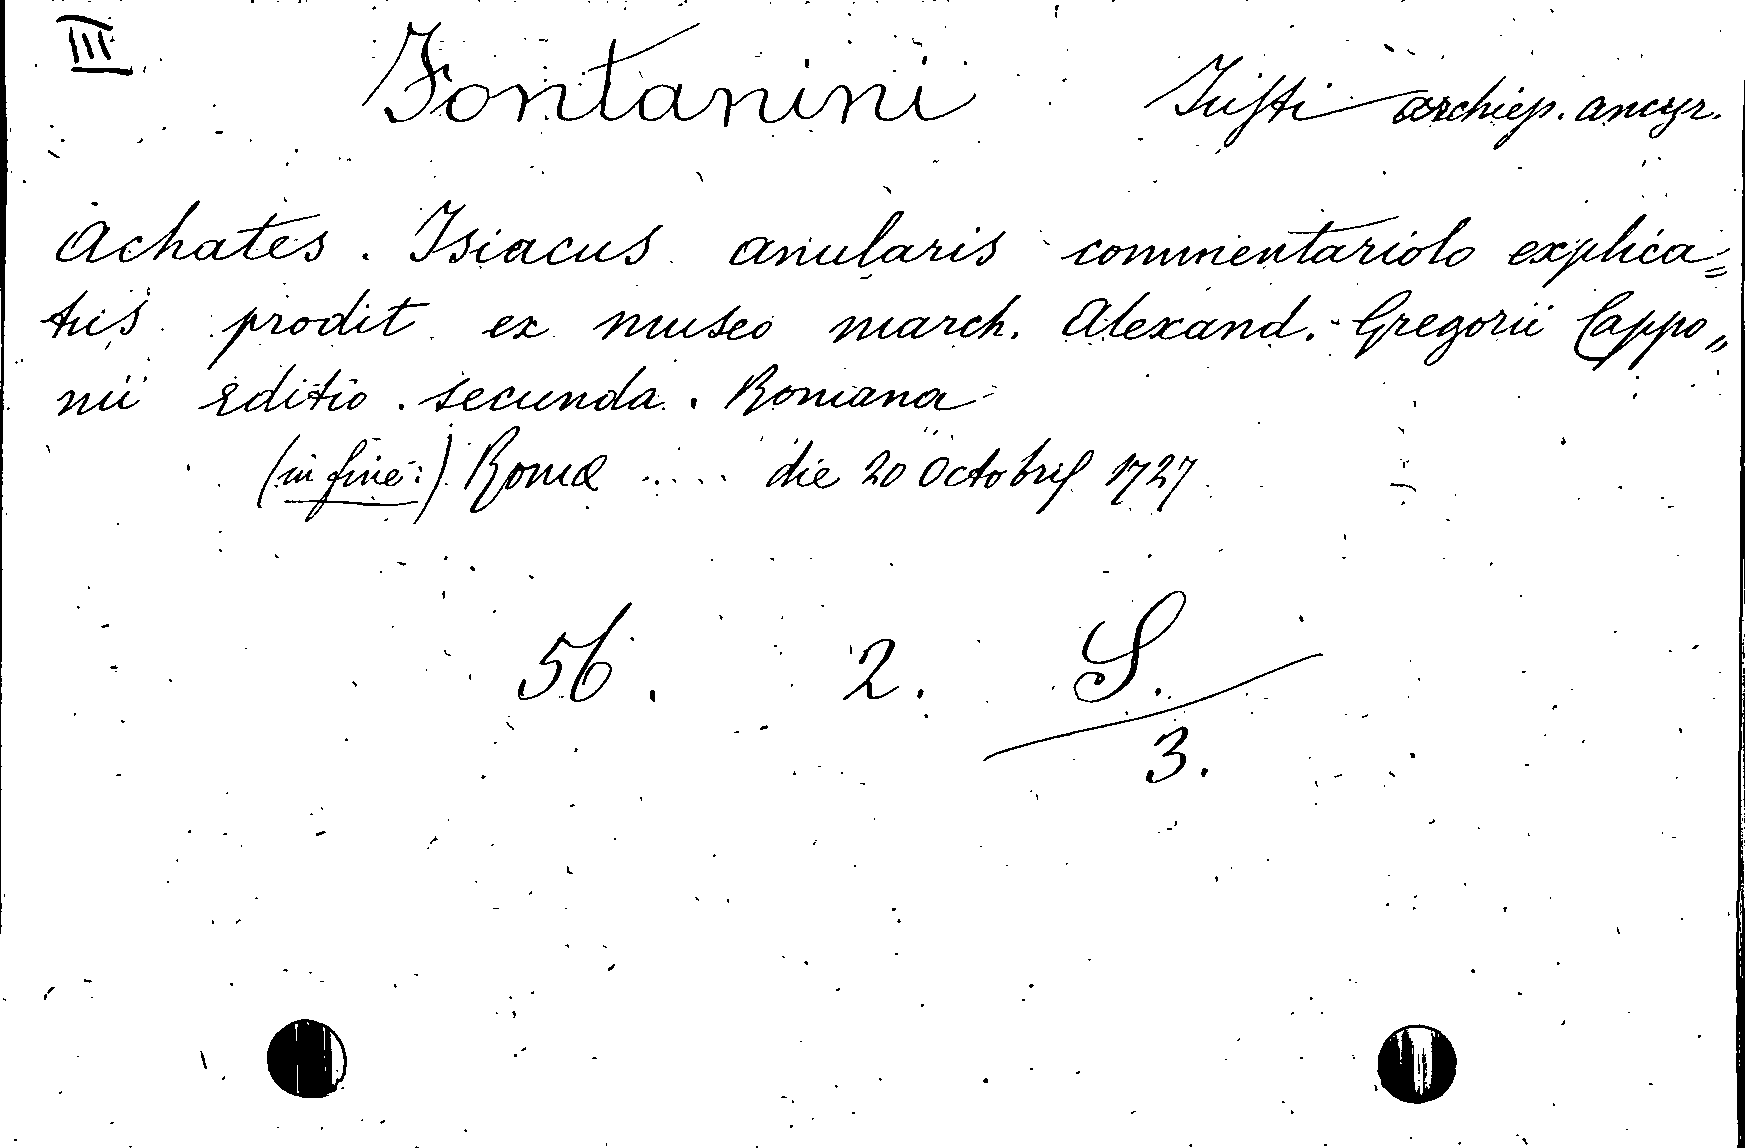 III
Fontanini Iusti archiep. ancyr.
Achates. Isiacus anularis commentariolo explica=
tus prodit ex museo march. Alexand. Gregorii Cappo„
nii Editio secunda. Romana
(in fine:) Romæ ..... die 20 Octobris 1727
56. 2. S.
3.